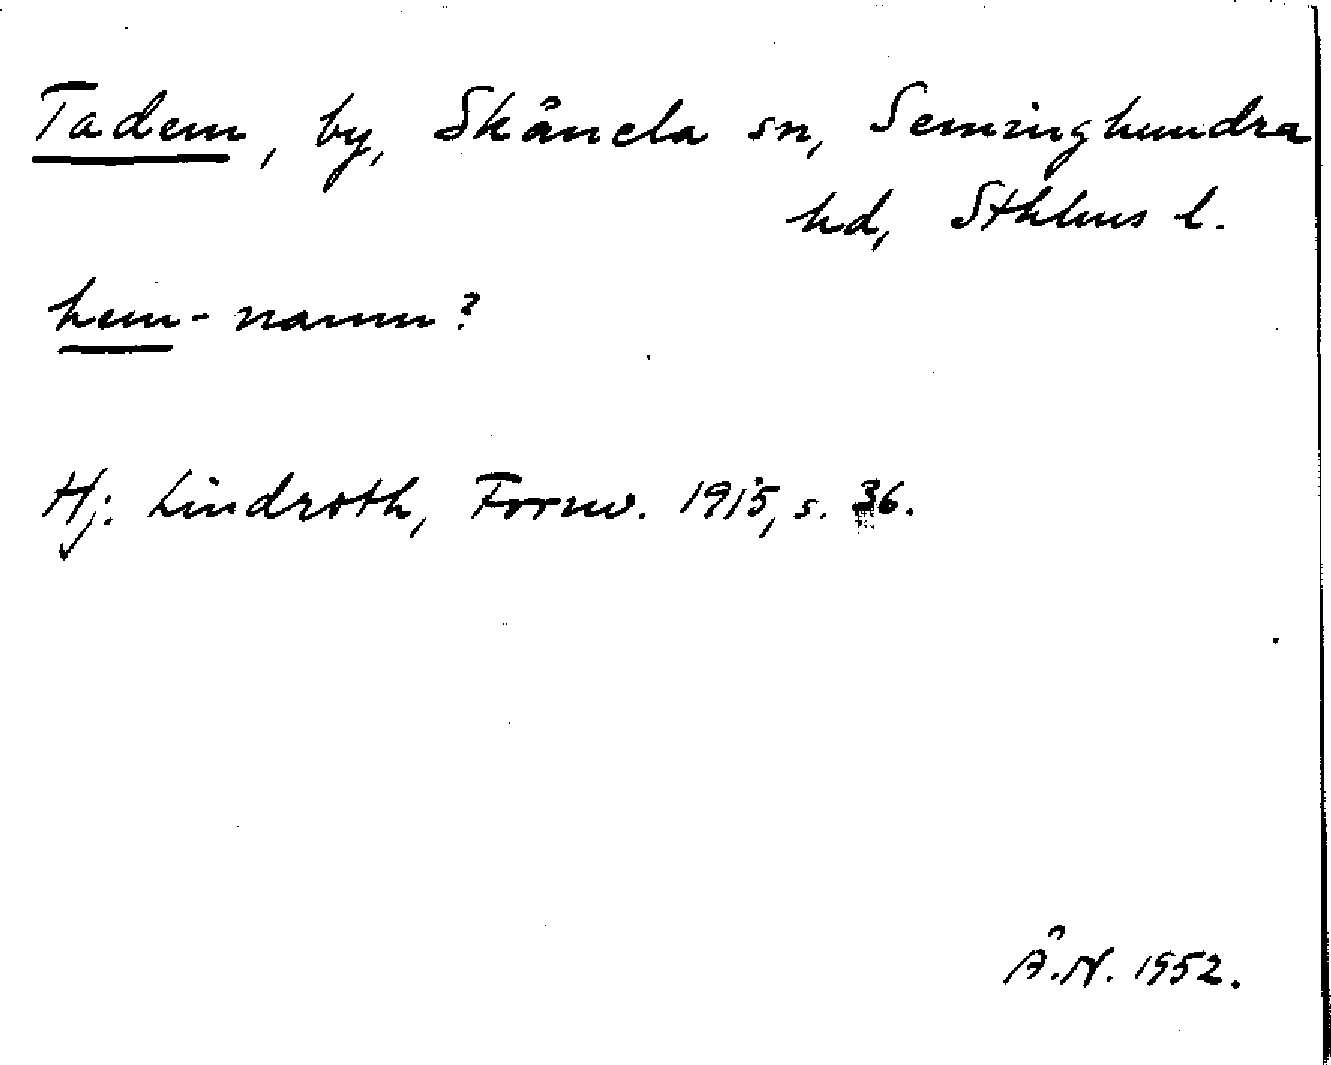 Tadem, by, Skånela sn, Seminghundra
hd, Sthlms l.
hem-namn?
Hj. Lindroth, Fornv. 1915, s. 36.
Å.N. 1952.